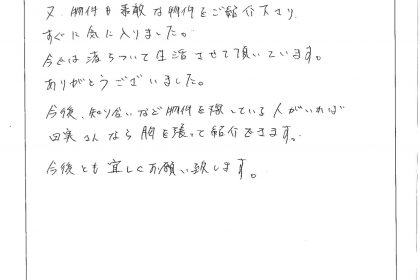 又、物件も素敵な物件をご紹介下さり、
すぐに気に入りました。
今では落ちついて生活させて頂いています。
ありがとうございました。
今後、知り合いなど物件を探している人がいれば
さんなら胸を張って紹介できます。
今後とも宜しくお願い致します。